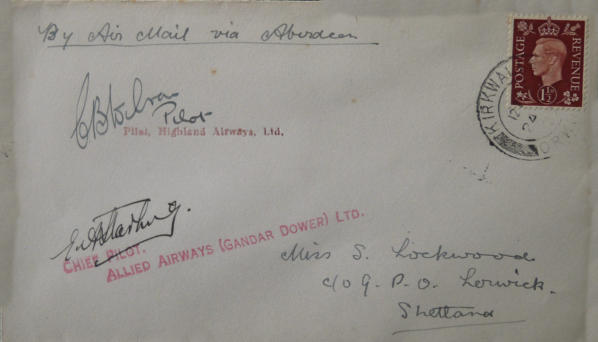 By Air Mail via Aberdeen
POSTAGE REVENUE
1½D
KIRKWALL
12
24
ORKNEY
Pilot
Pilot, Highland Airways, Ltd.
CHIEF PILOT.
ALLIED AIRWAYS (GANDAR DOWER) LTD.
Miss S. Lockwood
c/o G. P. O. Lerwick.
Shetland